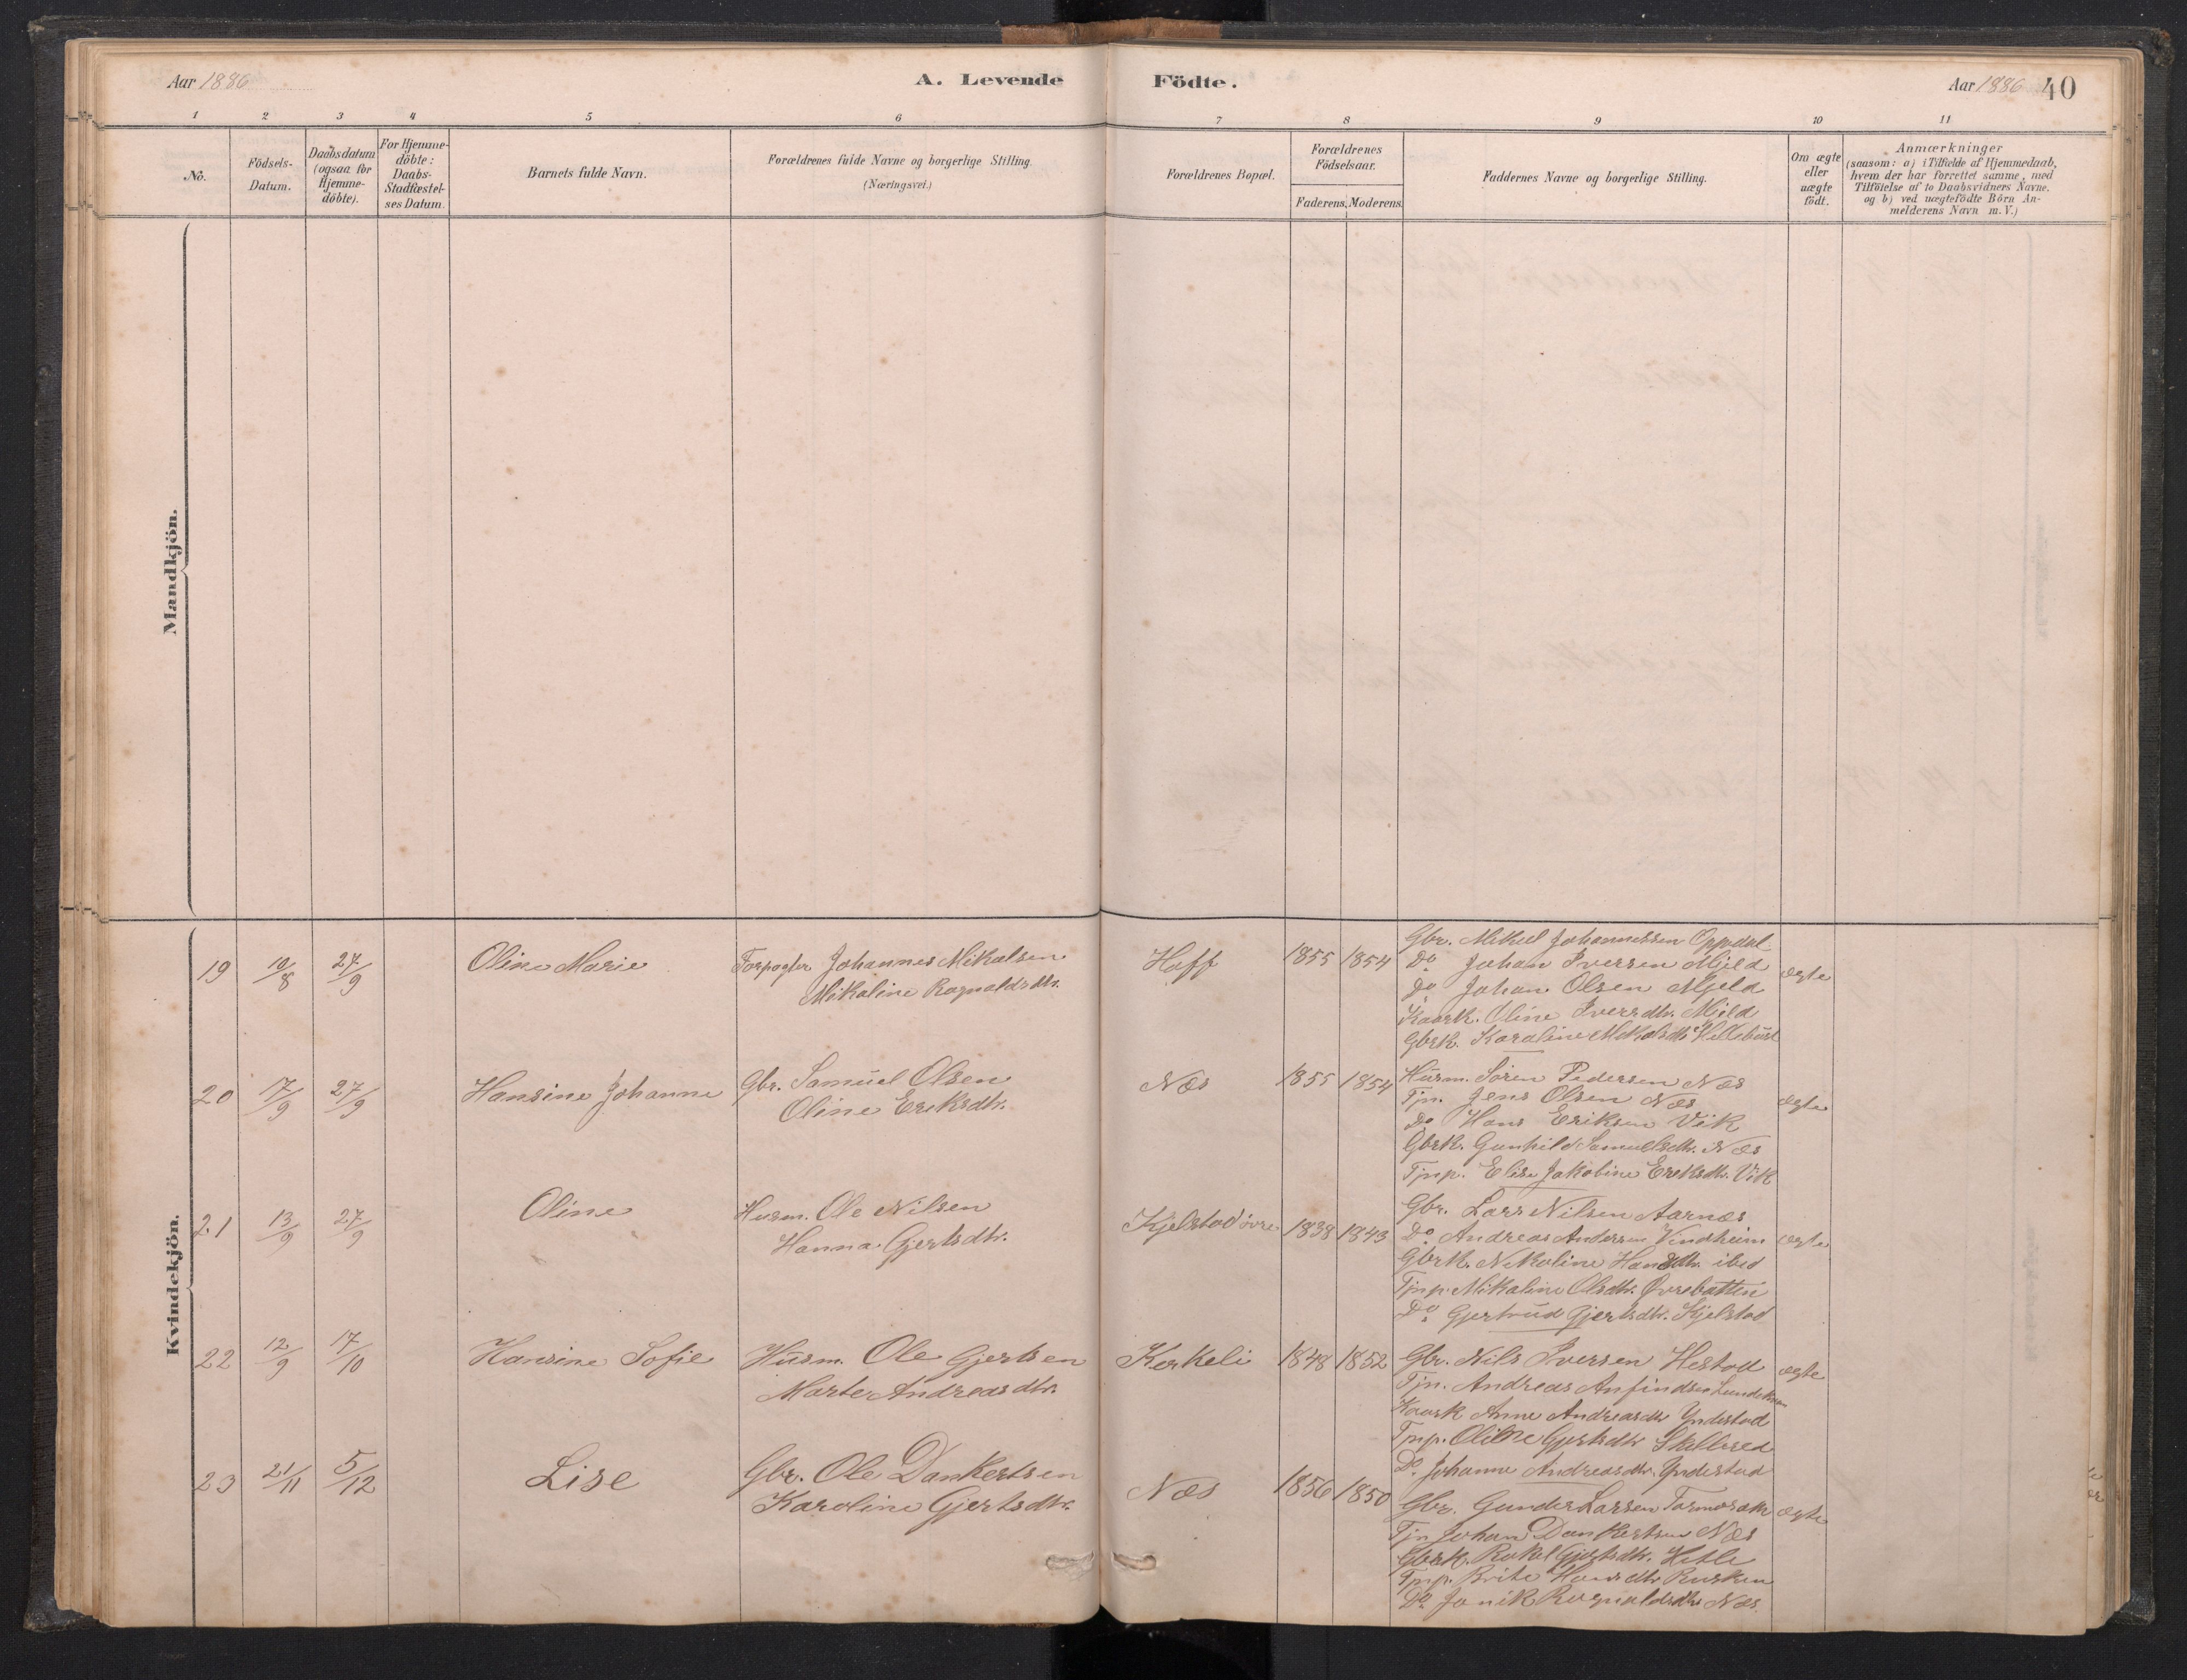 Aar 1886
A. Levende Födte.
Aar 1886 40
1 2 3 4 5 6 7 8 9 10 11
No.
Födsels-Datum.
Daabsdatum (ogsaa for Hjemme-döbte).
For Hjemme-döbte: Daabs-Stadfæstel-ses Datum.
Barnets fulde Navn.
Forældrenes fulde Navne og borgerlige Stilling.
(Næringsvei.)
Forældrenes Bopæl.
Forældrenes Födselsaar.
Faderens. Moderens.
Faddernes Navne og borgerlige Stilling.
Om ægte eller uægte födt.
Anmærkninger
(saasom: a) i Tilfælde af Hjemmedaab,
hvem der har forrettet samme, med
Tilföielse af to Daabsvidners Navne.
og b) ved uægtefödte Börn An-
melderens Navn m.V.)
Mandkjön.
Kvindekjön.
19 10/8 27/9 Oline Marie Forpagter Johannes Mikalsen
Mikaline Ragnaldsdtr.
Hoff 1855 1854 ægte
Gbr. Mikal Johannessen Oppedal
Do Johan Iversen Mjeld
Do Johan Olsen Mjeld
Kaark. Oline Iversdtr. Mjeld
Gbrk. Karoline Mikalsdtr Hellebust
20 17/9 27/9 Hansine Johanne Gbr. Samuel Olsen
Oline Eriksdtr.
Næs 1855 1854 ægte
Husm. Sören Pedersen Næs
Tjn. Jens Olsen Næs
Do Hans Eriksen Vik
Gbrk. Gunhild Samuelsdtr. Næs
Tjnp. Elise Jakobine Eriksdtr. Vik
21 13/9 27/9 Oline Husm. Ole Nilsen
Hanna Gjertsdtr.
Kjelstad övre 1838 1843 ægte
Gbr. Lars Nilsen Aarnæs
Do Andreas Andersen Vindheim
Gbrk. Nikoline Hansdtr. ibid
Tjnp. Mikaline Olsdtr. Övrebotten
Do Gjertrud Gjertsdtr. Kjelstad
22 12/9 17/10 Hansine Sofie Husm. Ole Gjertsen
Marte Andreasdtr.
Kerkeli 1848 1852 ægte
Gbr. Nils Iversen Hestad
Tjn. Andreas Anfindsen
Kaark Anne Andreasdtr Yndestad
Tjnp. Oline Gjertsdtr
Do Johanne Andreasdtr. Yndestad
23 21/11 5/12 Lise Gbr. Ole Dankertsen
Karoline Gjertsdtr.
Næs 1856 1850 ægte
Gbr. Gunder Larsen
Tjn Johan Dankertsen Næs
Gbrk. Rakel Gjertsdtr. Hetle
Tjnp. Brite Hansdtr
Do Janik Ragnaldsdtr Næs.